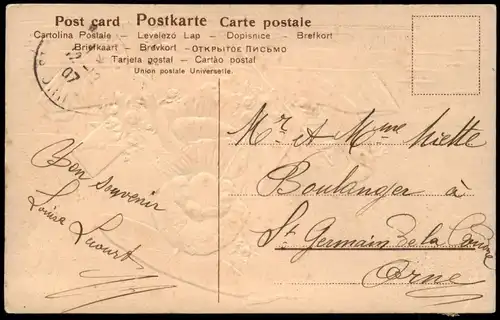 Post card Postkarte Carte postale
Cartolina Postale – Levelező Lap – Dopisnice – Brefkort
Briefkaart – Brevkort – ОТКРЫТОЕ ПИСЬМО
Tarjeta postal – Cartão postal
Union postale Universelle.
07
Mr et Mme Miette
Boulanger à
St Germain de la
Orne
Bon souvenir
Louise